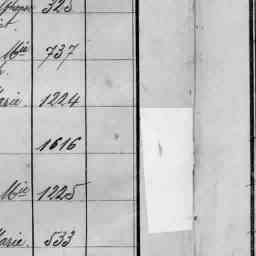 325
Mie 737
Marie. 1224
1616
Mie 1225
Marie. 533